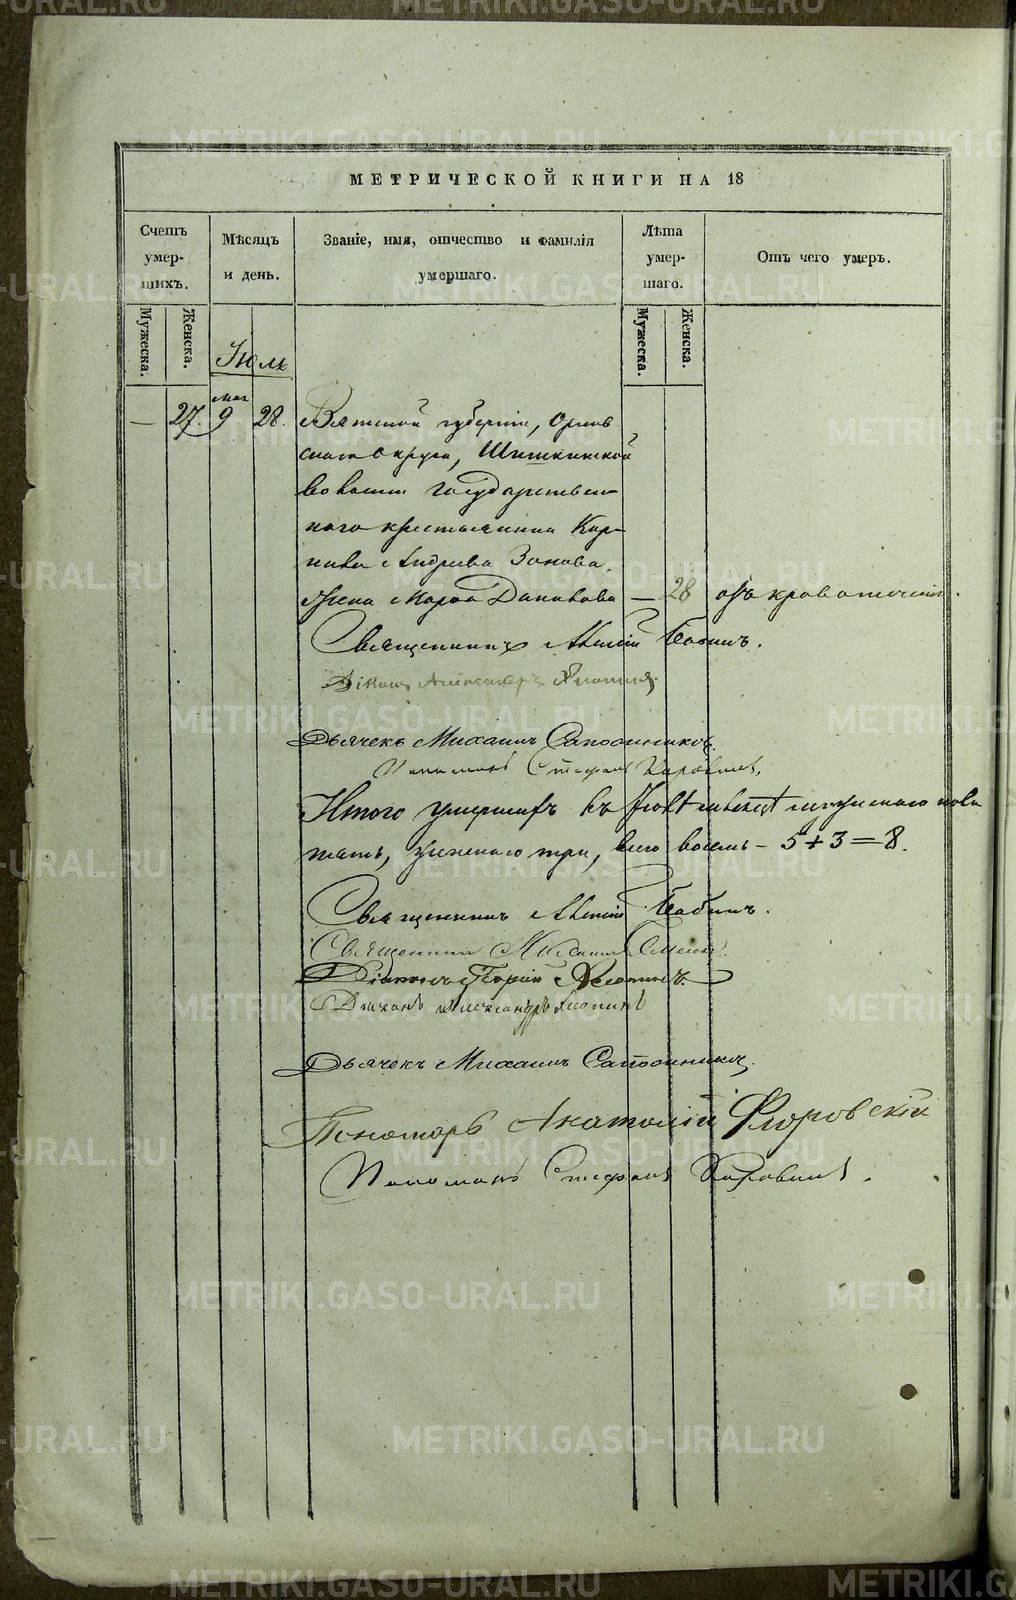 МЕТРИЧЕСКОЙ КНИГИ НА 18
Счетъ умер-шихъ.
Мѣсяцъ и день.
Званіе, имя, отчество и фамилія умершаго.
Лѣта умер-шаго.
Отъ чего умеръ.
Мужеска.
Женска.
Мужеска.
Женска.
Іюль
— 27. 9 28. Вятской губерніи, Орлов
скаго округа, Шишкинской
волости государствен
наго крестьянина Кор
нила Андреева Зонова,
жена Марѳа Данилова — 28 отъ кровотеченія.
Священникъ Бабинъ.
Діаконъ Александръ
Дьячекъ Михаилъ Сапожниковъ
Пономарь Стефанъ
Итого умершихъ въ мужескаго пола
пять, женскаго три, всего восемь – 5+3=8.
Священникъ Бабинъ.
Священникъ Михаилъ
Діаконъ Александръ
Дьячекъ Михаилъ Сапожниковъ
Пономарь Анатолій Флоровскій
Пономарь Стефанъ
METRIKI.GASO-URAL.RU